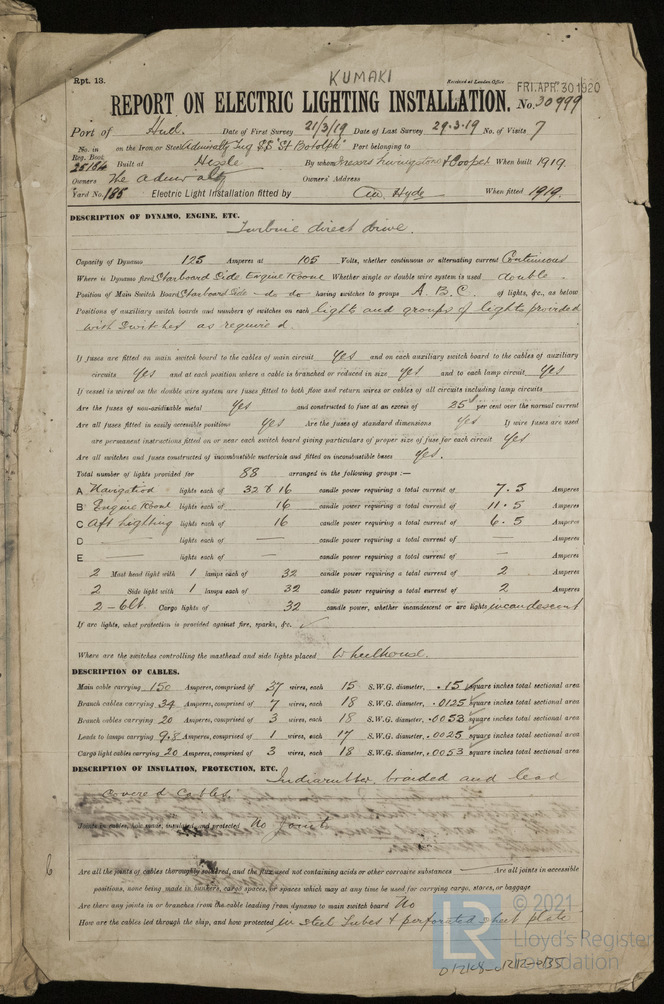 Rpt. 13.
KUMAKI
Received at London Office
FRI. APR. 30 1920
REPORT ON ELECTRIC LIGHTING INSTALLATION. No. 30999
Port of Hull. Date of First Survey 21/3/19 Date of Last Survey 29.3.19 No. of Visits 7
No. in Reg. Book 25184 on the Iron or Steel Admiralty Tug SS "St Botolph" Port belonging to
Built at Hessle By whom Messrs Livingstone & Cooper When built 1919
Owners The Admiralty Owners' Address
Yard No. 185 Electric Light Installation fitted by Hyde When fitted 1919.
DESCRIPTION OF DYNAMO, ENGINE, ETC.
Turbine direct drive.
Capacity of Dynamo 125 Amperes at 105 Volts, whether continuous or alternating current Continuous
Where is Dynamo fixed Starboard Side Engine Room Whether single or double wire system is used double
Position of Main Switch Board Starboard Side - do - do - having switches to groups A. B. C. of lights, &c., as below
Positions of auxiliary switch boards and numbers of switches on each lights and groups of lights provided
with switches as required.
If fuses are fitted on main switch board to the cables of main circuit Yes and on each auxiliary switch board to the cables of auxiliary
circuits Yes and at each position where a cable is branched or reduced in size Yes and to each lamp circuit Yes
If vessel is wired on the double wire system are fuses fitted to both flow and return wires or cables of all circuits including lamp circuits
Are the fuses of non-oxidizable metal Yes and constructed to fuse at an excess of 25 per cent over the normal current
Are all fuses fitted in easily accessible positions Yes Are the fuses of standard dimensions Yes If wire fuses are used
are permanent instructions fitted on or near each switch board giving particulars of proper size of fuse for each circuit Yes
Are all switches and fuses constructed of incombustible materials and fitted on incombustible bases Yes.
Total number of lights provided for 88 arranged in the following groups :—
A Navigation lights each of 32 & 16 candle power requiring a total current of 7.5 Amperes
B Engine Room lights each of 16 candle power requiring a total current of 11.5 Amperes
C Aft Lighting lights each of 16 candle power requiring a total current of 6.5 Amperes
D — lights each of — candle power requiring a total current of — Amperes
E — lights each of — candle power requiring a total current of — Amperes
2 Mast head light with 1 lamps each of 32 candle power requiring a total current of 2 Amperes
2 Side light with 1 lamps each of 32 candle power requiring a total current of 2 Amperes
2 - 6lt Cargo lights of 32 candle power, whether incandescent or arc lights incandescent
If arc lights, what protection is provided against fire, sparks, &c. ✓
Where are the switches controlling the masthead and side lights placed Wheelhouse.
DESCRIPTION OF CABLES.
Main cable carrying 150 Amperes, comprised of 37 wires, each 15 S.W.G. diameter, .15 square inches total sectional area
Branch cables carrying 34 Amperes, comprised of 7 wires, each 18 S.W.G. diameter, .0125 square inches total sectional area
Branch cables carrying 20 Amperes, comprised of 3 wires, each 18 S.W.G. diameter, .0053 square inches total sectional area
Leads to lamps carrying 9.8 Amperes, comprised of 1 wires, each 17 S.W.G. diameter, .0025 square inches total sectional area
Cargo light cables carrying 20 Amperes, comprised of 3 wires, each 18 S.W.G. diameter, .0053 square inches total sectional area
DESCRIPTION OF INSULATION, PROTECTION, ETC.
Indiarubber braided and lead
covered Cables
Joints in cables, how made, insulated, and protected No joints
Are all the joints of cables thoroughly soldered, and the flux used not containing acids or other corrosive substances — Are all joints in accessible
positions, none being made in bunkers, cargo spaces, or spaces which may at any time be used for carrying cargo, stores, or baggage
Are there any joints in or branches from the cable leading from dynamo to main switch board No
How are the cables led through the ship, and how protected in steel tubes & perforated sheet plate
© 2021
LR Lloyd's Register
Foundation